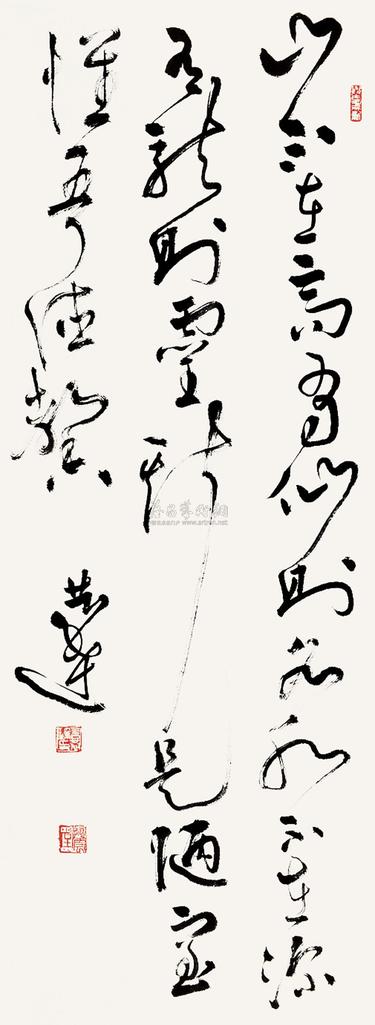 山不在高有仙则名水不在深
有龙则灵斯是陋室
惟吾德馨
www.artron.net